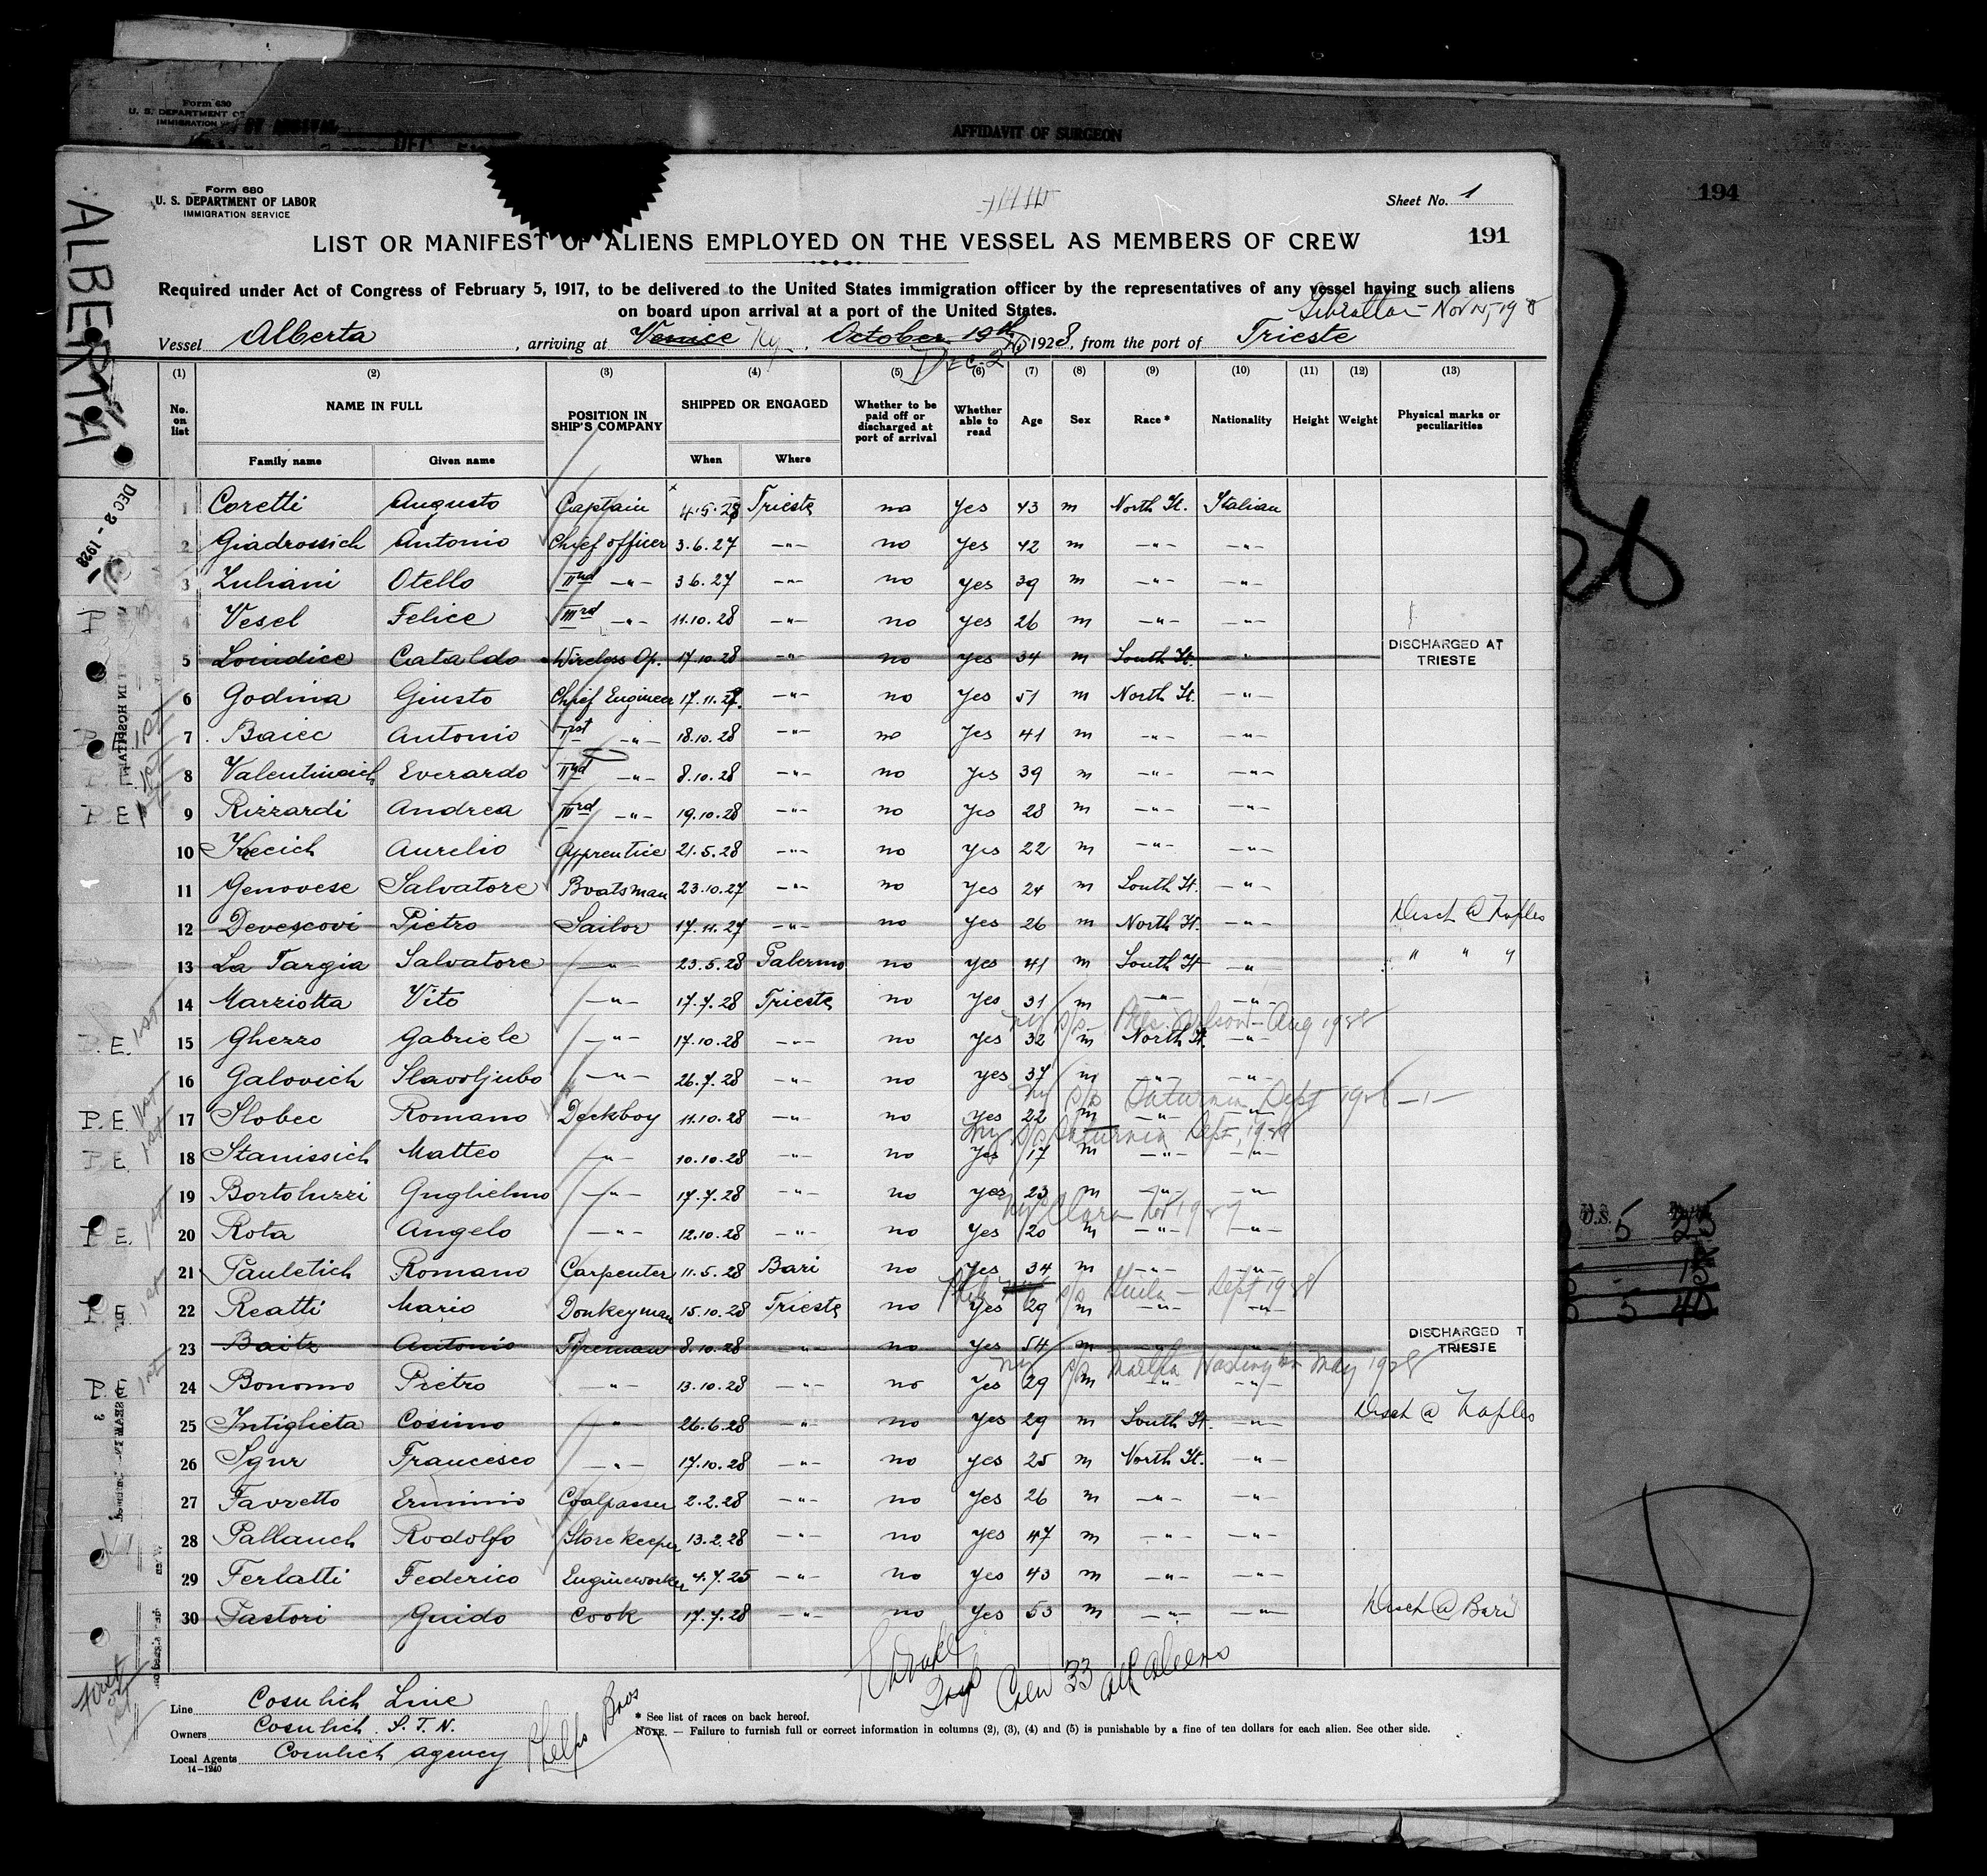 Form 630
U. S. DEPARTMENT OF
IMMIGRATION
AFFIDAVIT OF SURGEON
194
ALBERTA
Form 680
U. S. DEPARTMENT OF LABOR
IMMIGRATION SERVICE
Sheet No. 1
191
LIST OR MANIFEST OF ALIENS EMPLOYED ON THE VESSEL AS MEMBERS OF CREW
Required under Act of Congress of February 5, 1917, to be delivered to the United States immigration officer by the representatives of any vessel having such aliens
on board upon arrival at a port of the United States.
Gibraltar - Nov 15, 1928
Vessel Alberta, arriving at Venice Ny, October 19th 1928, from the port of Trieste
Dec. 2
(1) (2) (3) (4) (5) (6) (7) (8) (9) (10) (11) (12) (13)
No. on list NAME IN FULL POSITION IN SHIP'S COMPANY SHIPPED OR ENGAGED Whether to be paid off or discharged at port of arrival Whether able to read Age Sex Race* Nationality Height Weight Physical marks or peculiarities
Family name Given name When Where
DEC 2 - 1928
1 Coretti Augusto Captain 4.5.28 Trieste no yes 43 m North It. Italian
2 Giadrossich Antonio Chief officer 3.6.27 -"- no yes 42 m -"- -"-
3 Zuliani Otello IInd -"- 3 6.27 -"- no yes 39 m -"- -"-
4 Vesel Felice IIIrd -"- 11.10.28 -"- no yes 26 m -"- -"-
5 Loiudice Cataldo Wireless Op. 17.10.28 -"- no yes 34 m South It. -"- DISCHARGED AT TRIESTE
6 Godina Giusto Chief Engineer 17.11.27. -"- no yes 51 m North It. -"-
7 Baiec Antonio Irst -"- 18.10.28 -"- no yes 41 m -"- -"-
8 Valentincich Everardo IInd -"- 8.10.28 -"- no yes 39 m -"- -"-
P.E. 9 Rizzardi Andrea IIIrd -"- 19.10.28 -"- no yes 28 m -"- -"-
10 Kecich Aurelio Apprentice 21.5.28 -"- no yes 22 m -"- -"-
11 Genovese Salvatore Boatsman 23.10.27 -"- no yes 24 m South It. -"-
12 Devescovi Pietro Sailor 17.11.27 -"- no yes 26 m North It. -"- Disch @ Naples
13 La Targia Salvatore -"- 23.5.28 Palermo no yes 41 m South It -"- " " "
14 Marziotta Vito -"- 17.7.28 Trieste no yes 31 m -"- -"-
Ny s/s Pres. Wilson - Aug 1928
P.E. 15 Ghezzo Gabriele -"- 17.10.28 -"- no yes 32 m North It. -"-
16 Galovich Slavoljubo -"- 26.7.28 -"- no yes 37 m -"- -"-
Ny s/s Saturnia Sept 1928 -1-
P.E. 17 Slobec Romano Deckboy 11.10.28 -"- no yes 22 m -"- -"-
Ny s/s Saturnia Sept, 1928
P.E. 18 Stanissich Matteo -"- 10.10.28 -"- no yes 17 m -"- -"-
19 Bortoluzzi Guglielmo -"- 17.7.28 -"- no yes 23 m -"- -"-
Ny Clara Nov 1927
P.E. 20 Rota Angelo -"- 12.10.28 -"- no yes 20 m -"- -"-
21 Pauletich Romano Carpenter 11.5.28 Bari no yes 34 m -"- -"-
s/s Sept 1928
P.E. 22 Reatti Mario Donkeyman 15.10.28 Trieste no yes 29 m -"- -"-
23 Baitz Antonio Fireman 8.10.28 -"- no yes 54 m -"- -"- DISCHARGED T TRIESTE
Ny s/s Martha Washington May 1928
P.E. 24 Bonomo Pietro -"- 13.10.28 -"- no yes 29 m -"- -"-
25 Intiglieta Cosimo -"- 26.6.28 -"- no yes 29 m South It. -"- Disch @ Naples
26 Sgur Francesco -"- 17.10.28 -"- no yes 25 m North It. -"-
27 Favretto Erminio Coalpasser 2.2.28 -"- no yes 26 m -"- -"-
28 Pallauch Rodolfo Store keeper 13.2.28 -"- no yes 47 m -"- -"-
29 Ferlatti Federico Engineworker 4.7.25 -"- no yes 43 m -"- -"-
30 Tastori Guido Cook 17.7.28 -"- no yes 53 m -"- -"- Disch @ Bari
Crew 33 all aliens
Line Cosulich Line
Owners Cosulich S.T.N.
Local Agents Cosulich agency
Phelps Bros
14-1240
* See list of races on back hereof.
NOTE. — Failure to furnish full or correct information in columns (2), (3), (4) and (5) is punishable by a fine of ten dollars for each alien. See other side.